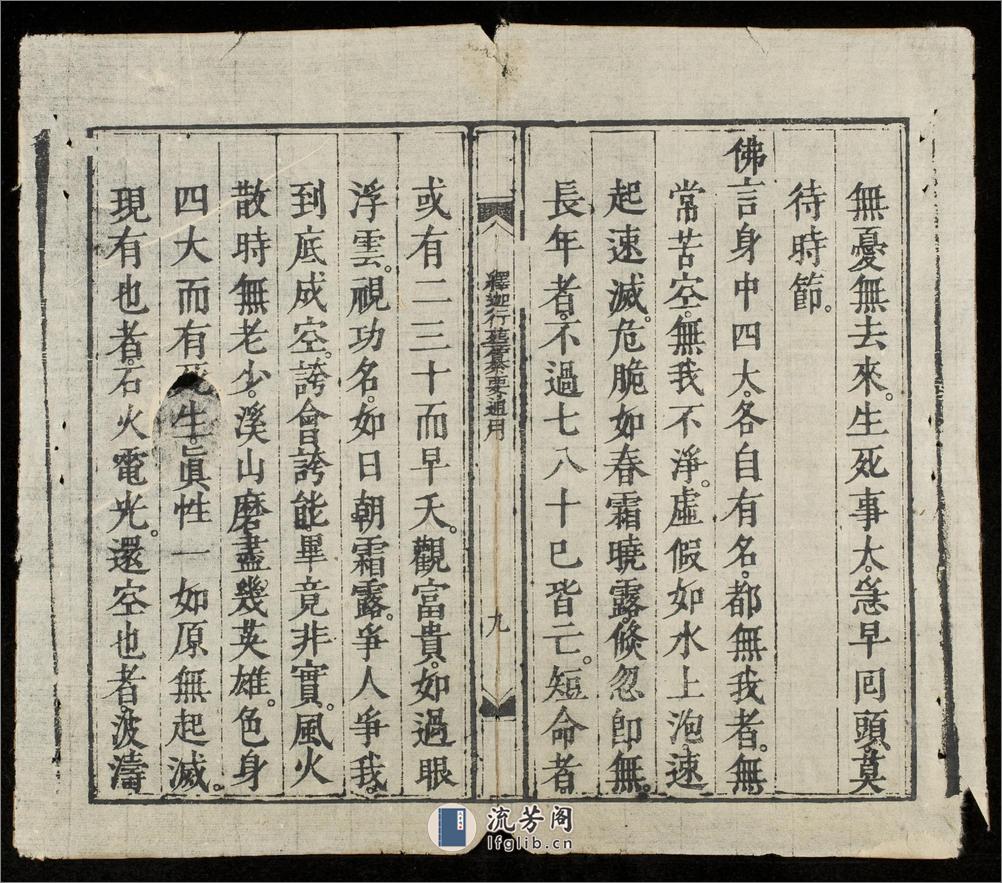 無憂無去來。生死事大。急早回頭莫
待時節。
佛言身中四大。各自有名。都無我者。無
常苦空。無我不淨。虛假如水上泡。速
起速滅。危脆如春霜曉露。倐忽即無。
長年者。不過七八十已皆亡。短命者
釋迦行 要通用
九
或有二三十而早夭。觀富貴。如過眼
浮雲。視功名。如日朝霜露。爭人爭我。
到底成空。誇會誇能。畢竟非實。風火
散時無老少。溪山磨盡幾英雄。色身
四大而有 生。眞性一如原無起滅。
現有也者。石火電光。還空也者。波濤
流芳阁
lfglib.cn